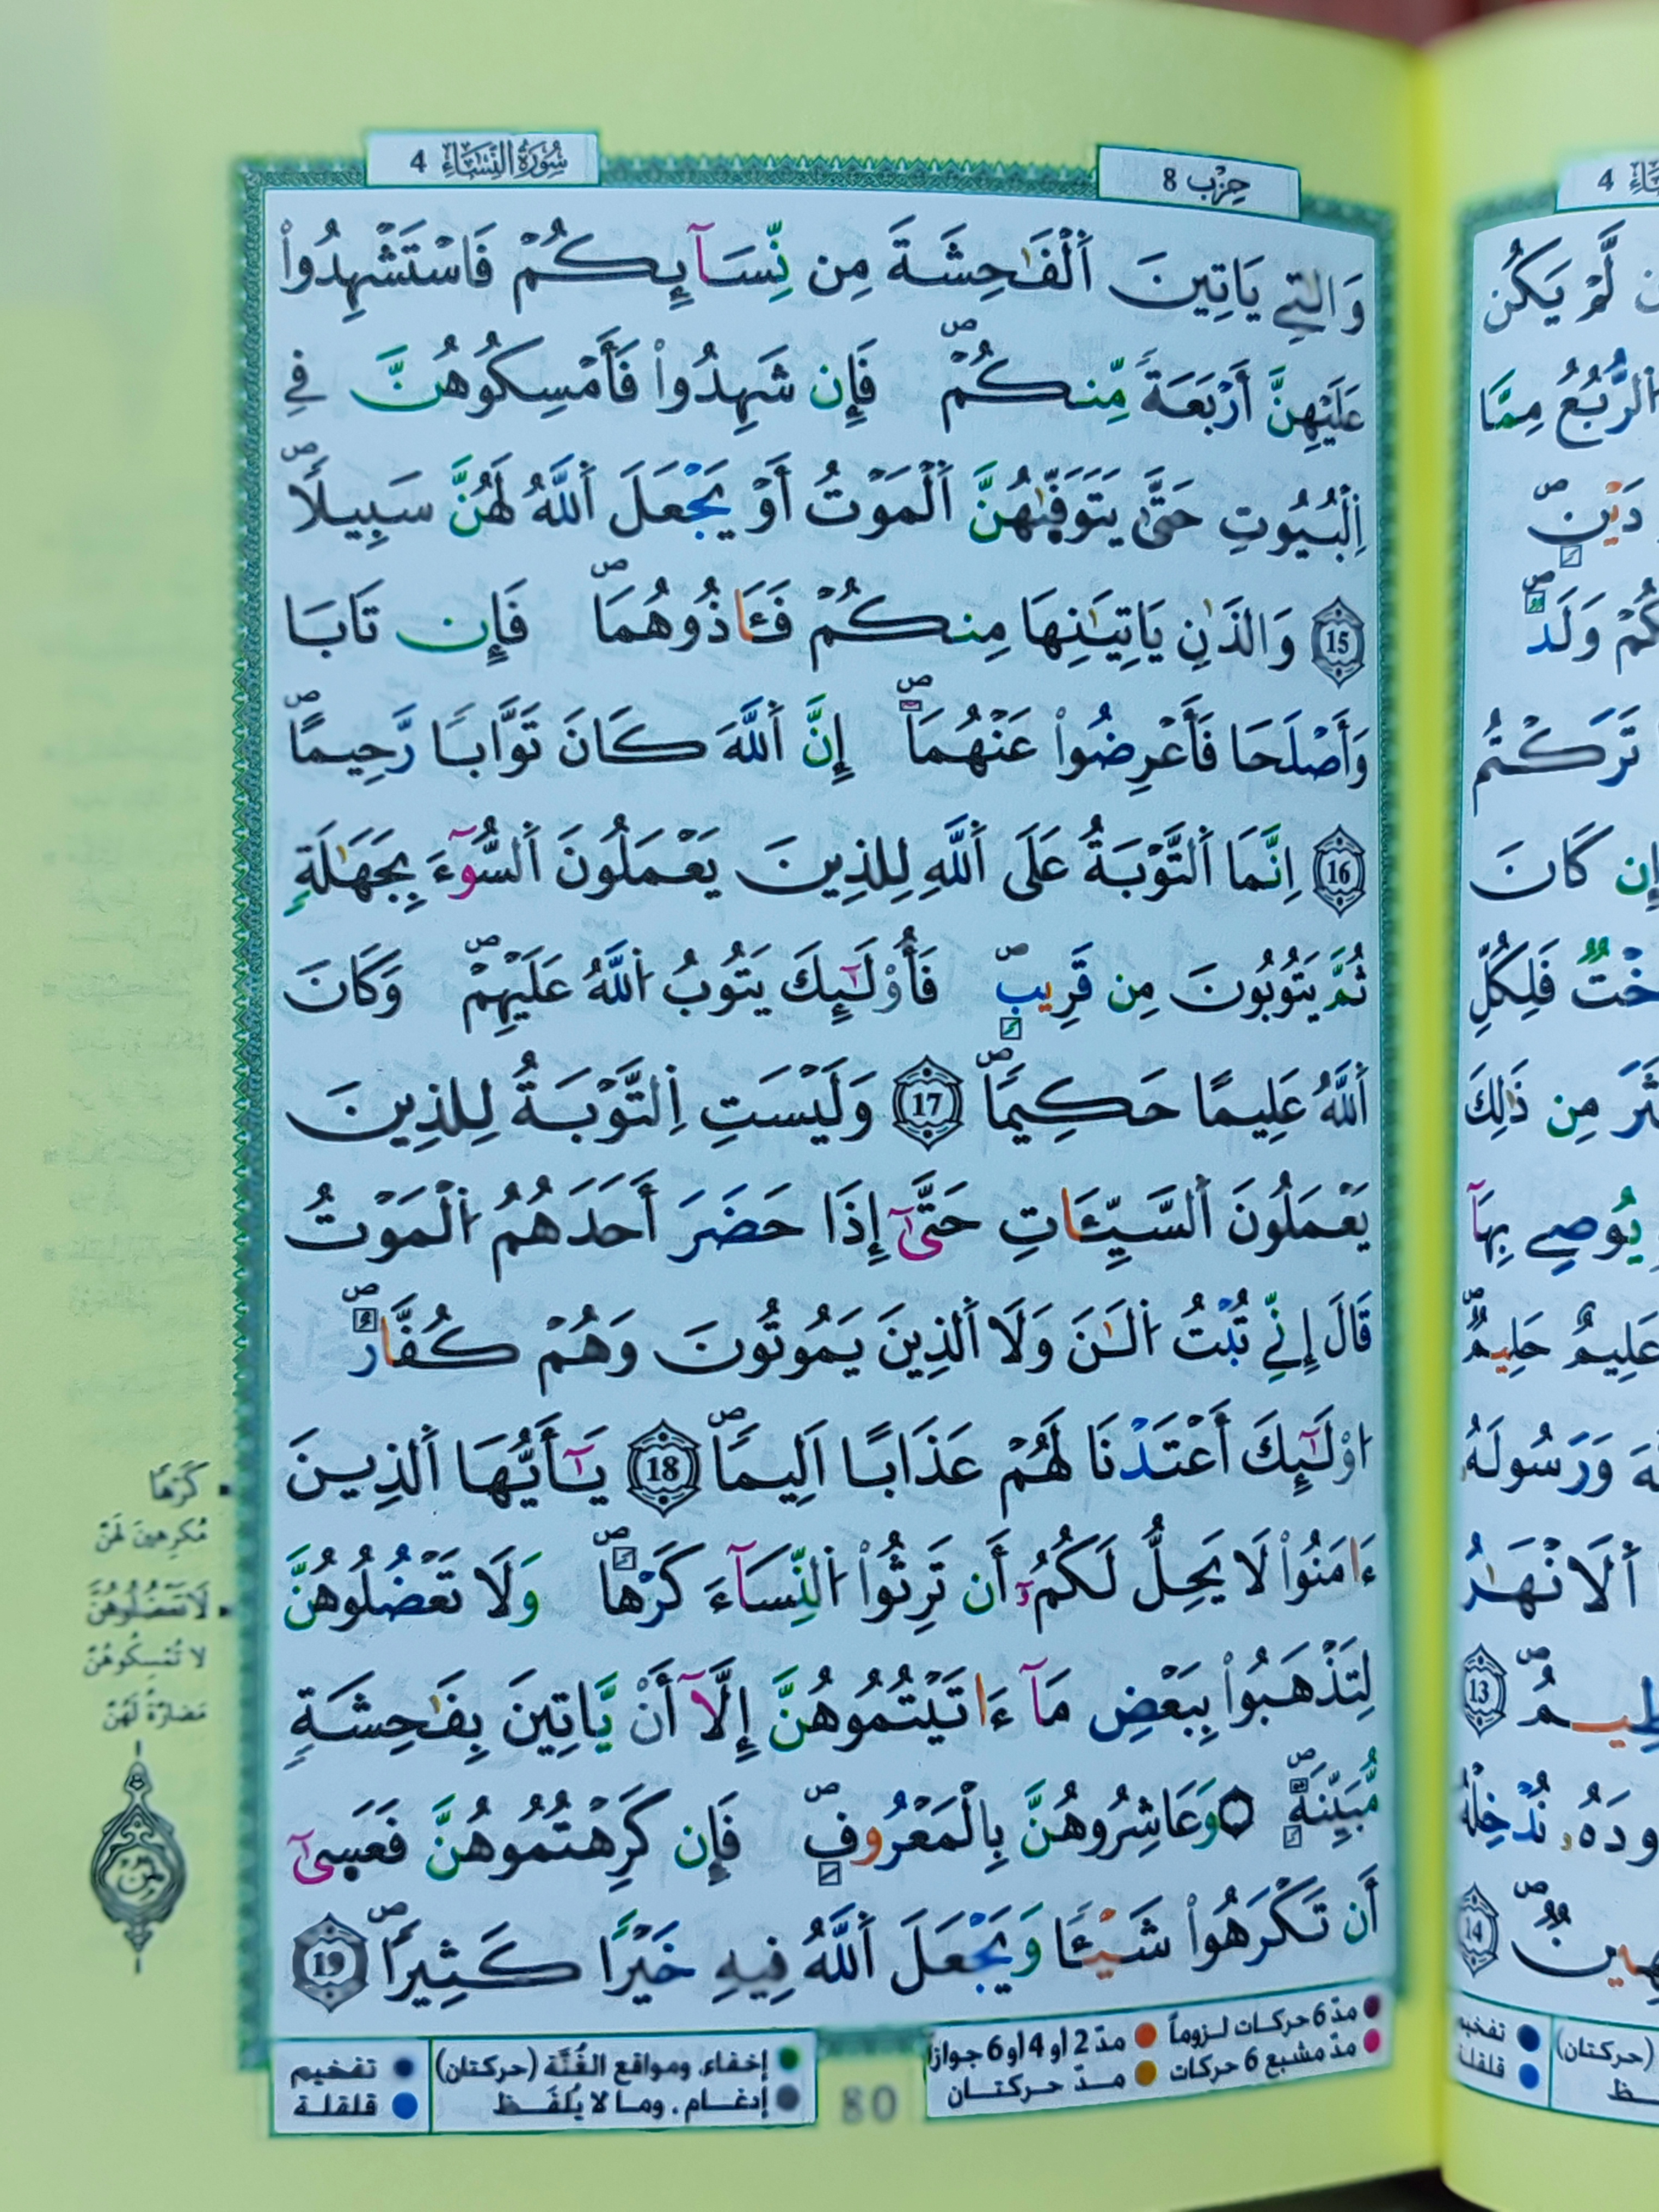 سُورَةُ النِّسَاءِ 4
حِزْب 8
وَالتِے يَاتِينَ اَ۬لْفَٰحِشَةَ مِن نِّسَآئِكُمْ فَاسْتَشْهِدُواْ
عَلَيْهِنَّ أَرْبَعَةٗ مِّنكُمْۖ فَإِن شَهِدُواْ فَأَمْسِكُوهُنَّ فِے
اِ۬لْبُيُوتِ حَتَّىٰ يَتَوَفّىٰهُنَّ اَ۬لْمَوْتُ أَوْ يَجْعَلَ اَ۬للَّهُ لَهُنَّ سَبِيلاٗۖ
15 وَالذَٰنِ يَاتِيَٰنِهَا مِنكُمْ فَـَٔاذُوهُمَاۖ فَإِن تَابَا
وَأَصْلَحَا فَأَعْرِضُواْ عَنْهُمَاۖ إِنَّ اَ۬للَّهَ كَانَ تَوَّاباٗ رَّحِيماًۖ
16 اِنَّمَا اَ۬لتَّوْبَةُ عَلَى اَ۬للَّهِ لِلذِينَ يَعْمَلُونَ اَ۬لسُّوٓءَ بِجَهَٰلَةٖ
ثُمَّ يَتُوبُونَ مِن قَرِيبٖۖ فَأُوْلَٰٓئِكَ يَتُوبُ اُ۬للَّهُ عَلَيْهِمْۖ وَكَانَ
اَ۬للَّهُ عَلِيماً حَكِيماٗۖ 17 وَلَيْسَتِ اِ۬لتَّوْبَةُ لِلذِينَ
يَعْمَلُونَ اَ۬لسَّيِّـَٔاتِ حَتَّىٰٓ إِذَا حَضَرَ أَحَدَهُمُ اُ۬لْمَوْتُ
قَالَ إِنِّے تُبْتُ اُ۬لَٰنَ وَلَا اَ۬لذِينَ يَمُوتُونَ وَهُمْ كُفَّارٌۖ
اُوْلَٰٓئِكَ أَعْتَدْنَا لَهُمْ عَذَاباً اَلِيماٗۖ 18 يَٰٓأَيُّهَا اَ۬لذِينَ
ءَامَنُواْ لَا يَحِلُّ لَكُمُۥٓ أَن تَرِثُواْ اُ۬لنِّسَآءَ كَرْهاٗۖ وَلَا تَعْضُلُوهُنَّ
لِتَذْهَبُواْ بِبَعْضِ مَآ ءَاتَيْتُمُوهُنَّ إِلَّآ أَنْ يَّاتِينَ بِفَٰحِشَةٖ
مُّبَيِّنَةٖۖ وَعَاشِرُوهُنَّ بِالْمَعْرُوفِۖ فَإِن كَرِهْتُمُوهُنَّ فَعَس۪ىٰٓ
أَن تَكْرَهُواْ شَيْـٔاٗ وَيَجْعَلَ اَ۬للَّهُ فِيهِ خَيْراٗ كَثِيراٗۖ 19
كَرْهاً
مُكرِهِينَ لَهُنّ
لَا تَعْضُلُوهُنَّ
لا تُمْسِكُوهُنّ
مَضَارَّةً لَهُنّ
ثمن
مدّ 6 حركات لـزوماً
مدّ 2 أو 4 أو 6 جوازاً
مدّ مشبع 6 حركات
مـدّ حـركتـان
إخفاء، ومواقع الغُنَّة (حركتان)
إدغـام . ومـا لا يُلفَـظ
تفخيم
قلقلـة
80
4
ن لَّمْ يَكُن
اُ۬لرُّبُعُ مِمَّا
دَيْنٖۖ
كُمْ وَلَد
تَرَكْتُم
إِن كَانَ
خْتٞ فَلِكُلِّ
ثَرَ مِن ذَٰلِكَ
يُوصِے بِهَآ
عَلِيمٌ حَلِيمٞۖ
هَ وَرَسُولَهُ
اَ۬لَانْهَٰرُ
13
نُدْخِلْهُ
14
تفخيم
قلقلة
(حركتان)